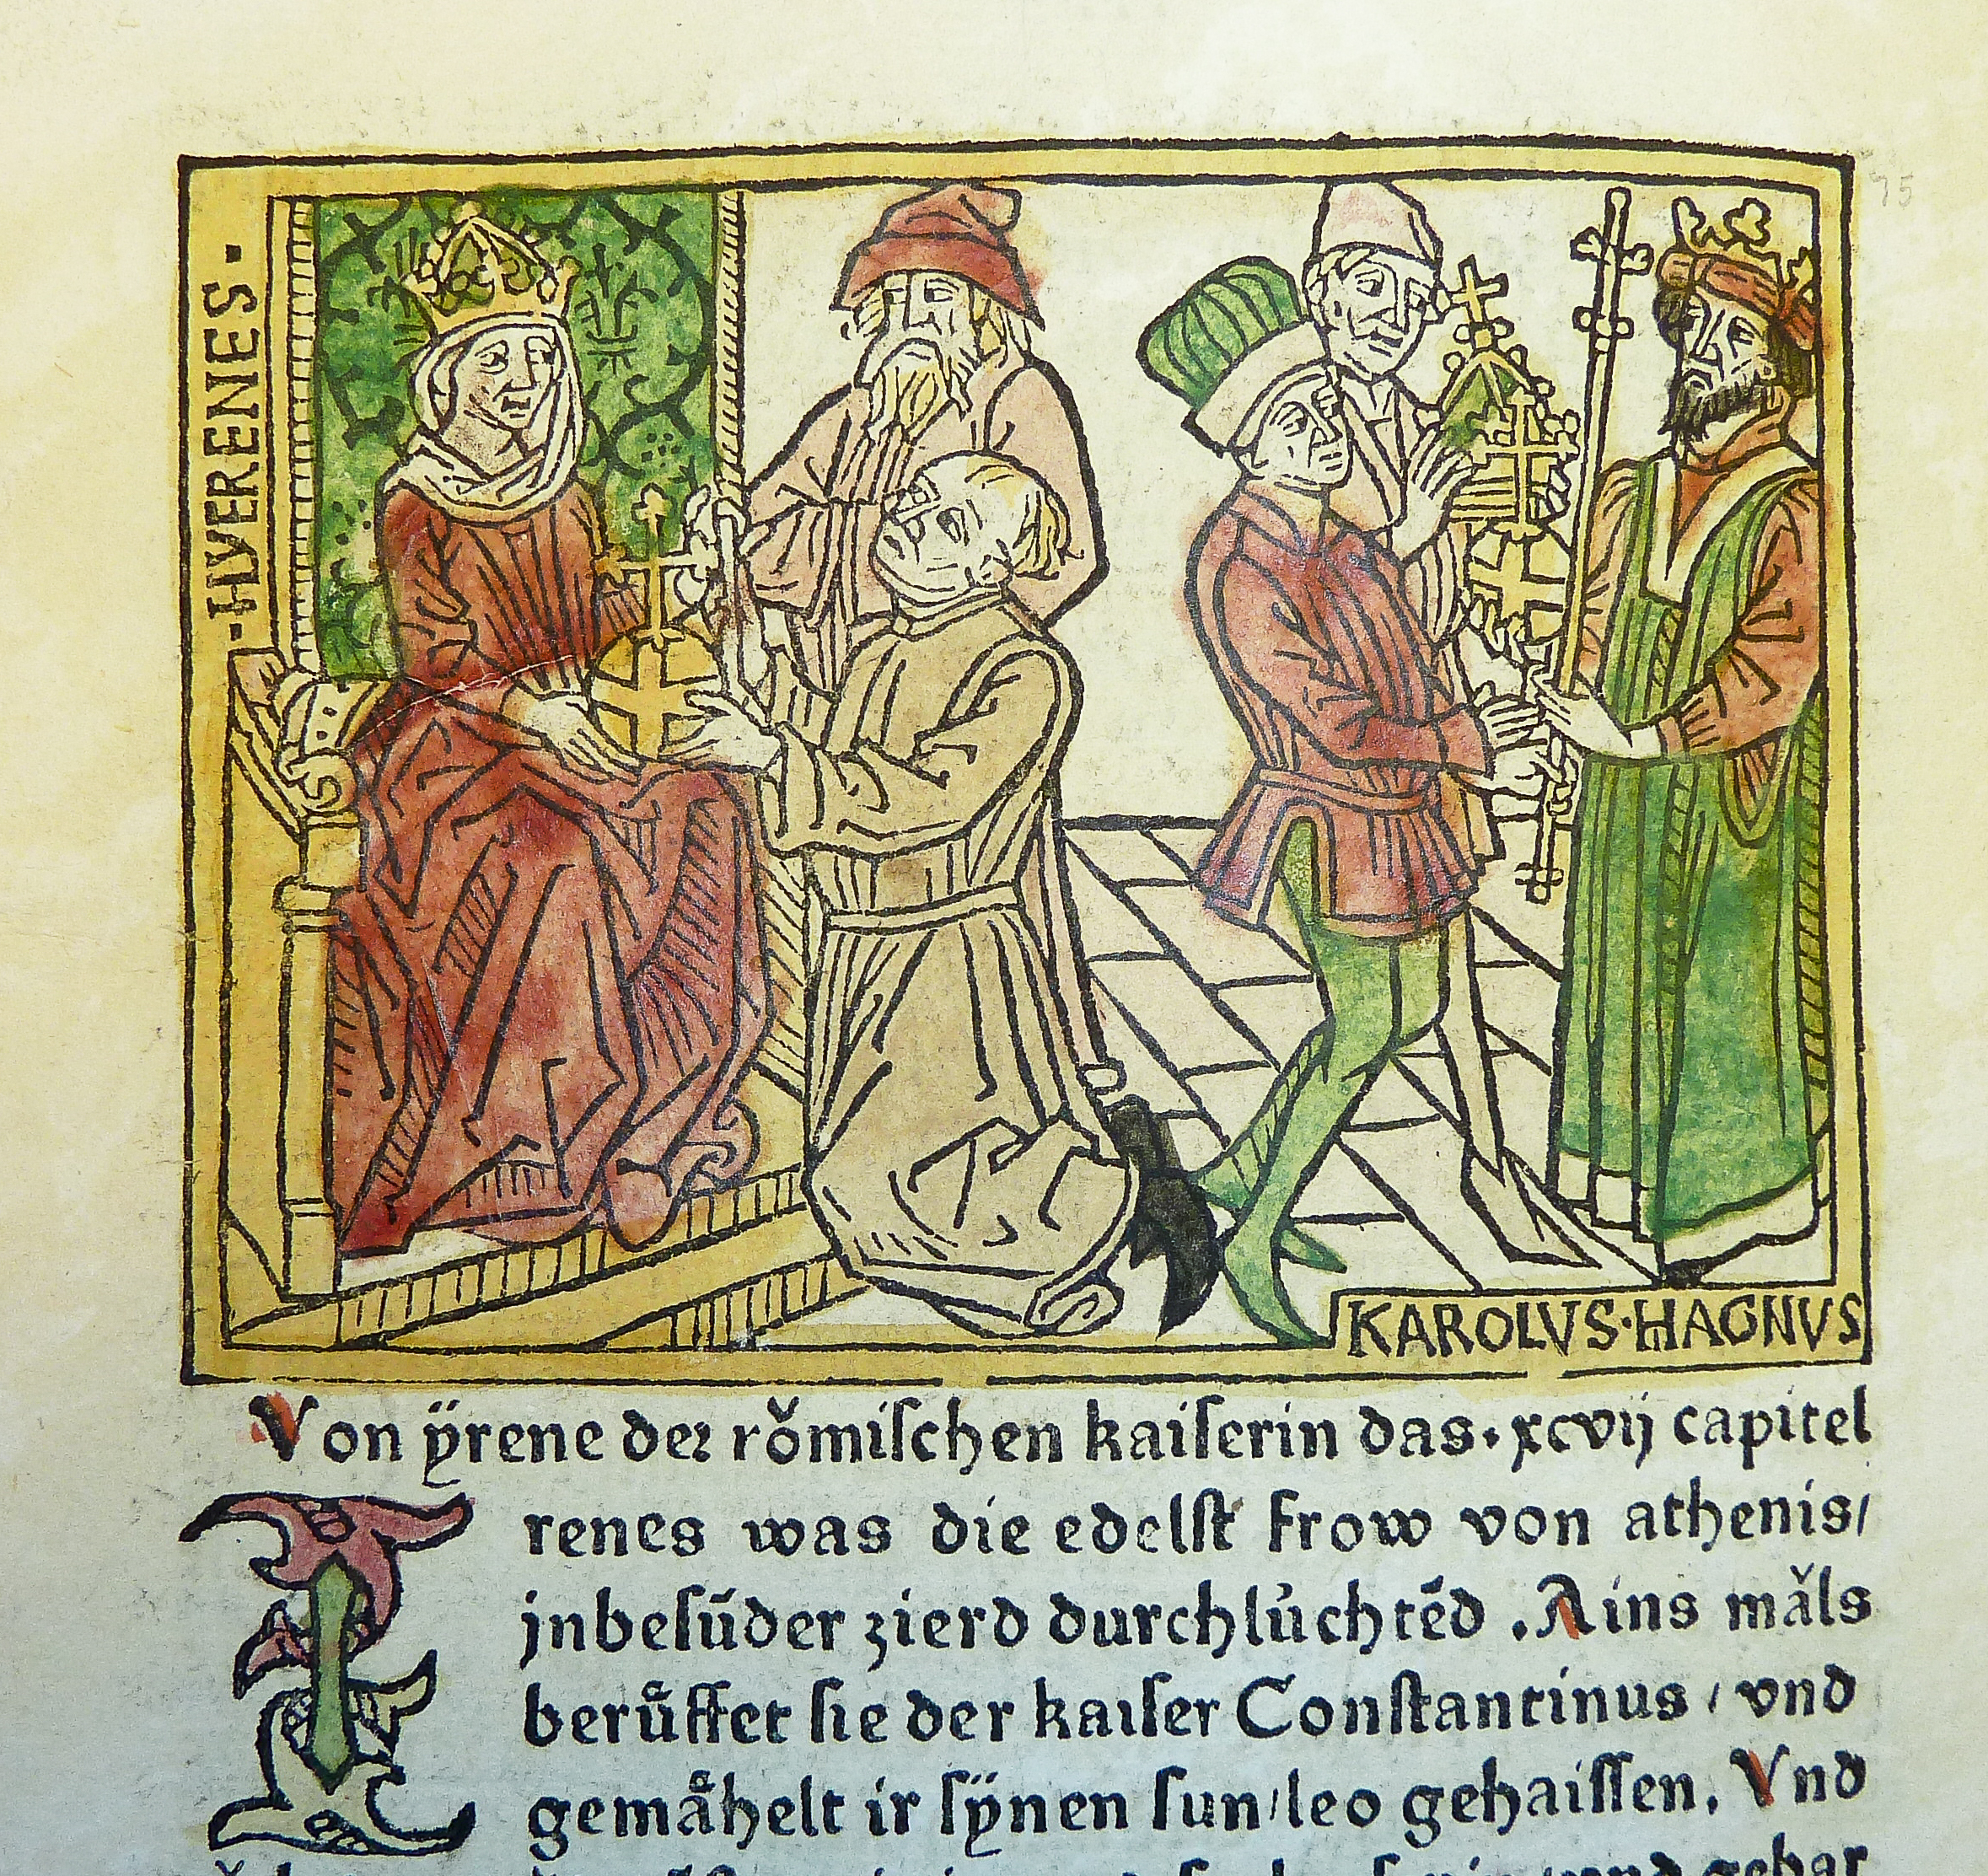 ·HYERENES·
95
KAROLVS·HAGNVS
Von ÿrene der rǒmiſchen kaiſerin das· xcvij capitel
Irenes was die edelſt frow von athenis/
jnbeſūder zierd durchlu̇chtēd . Ains mǎls
berůffet ſie der kaiſer Conſtantinus / vnd
gemåhelt ir ſÿnen ſun/leo gehaiſſen. Vnd